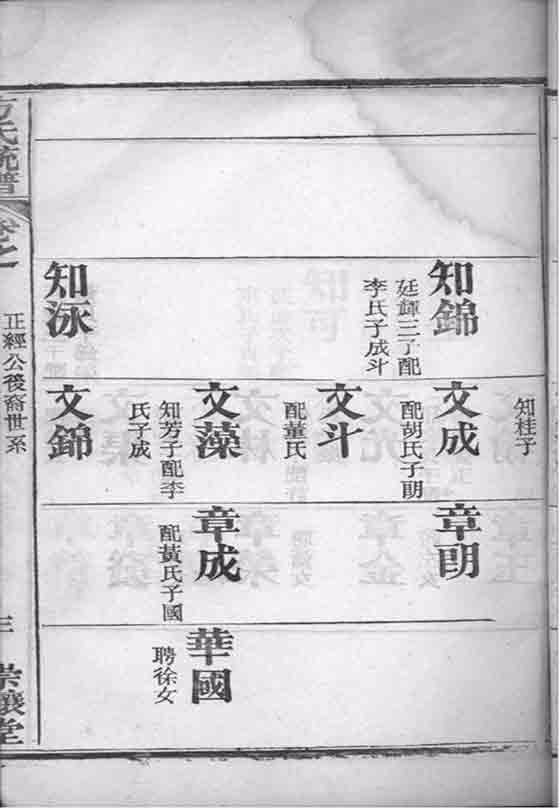 知錦
廷輝三子配
李氏子成斗
知泳
知桂子
文成
配胡氏子明
文斗
配董氏
文藻
知芳子配李
氏子成
文錦
章明
章成
配黃氏子國
華國
聘徐女
方氏統譜
卷之
正經公後裔世系
三
崇讓堂